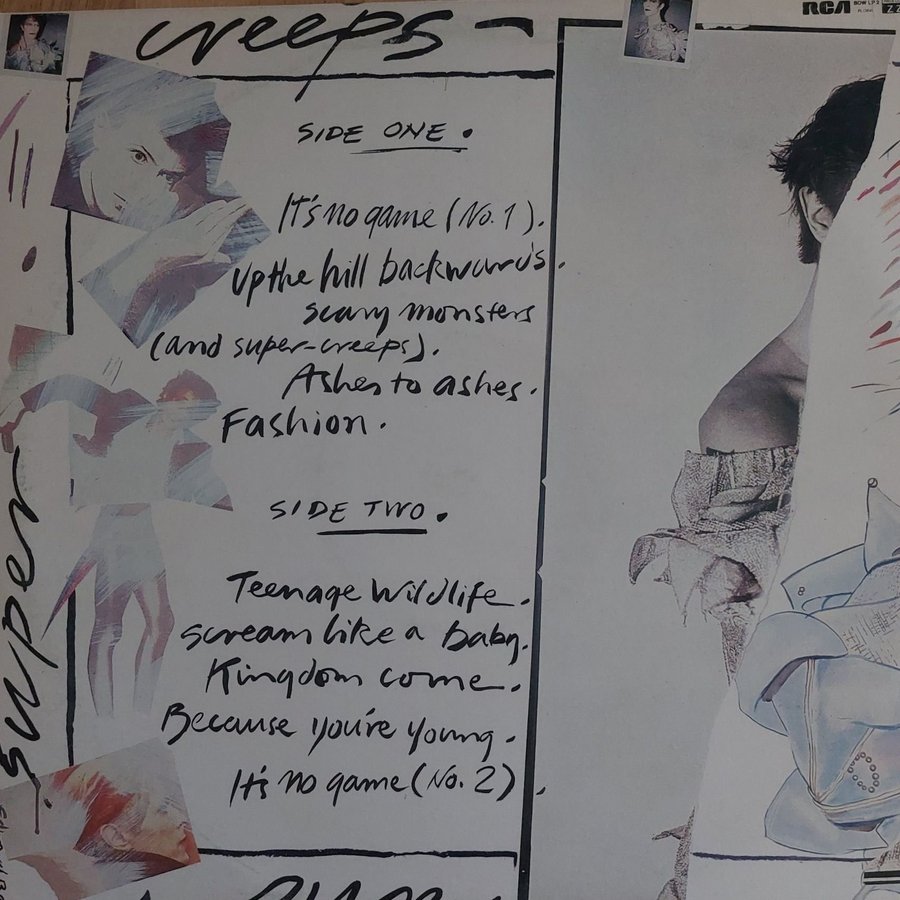 creeps -
RCA
BOW LP 2
SIDE ONE.
It's no game (No. 1).
Up the hill backwards.
scary monsters
(and super-creeps).
Ashes to ashes.
Fashion.
SIDE TWO.
Teenage Wildlife.
scream like a baby.
Kingdom come.
Because you're young.
It's no game (No. 2).
super